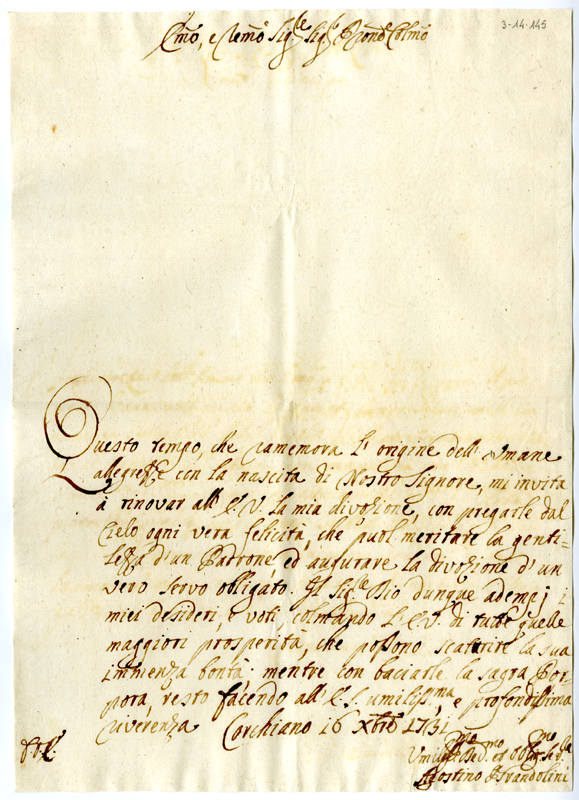 3-14-145
Emõ, e Remõ Sig:le Sig:le Pron̄e Colmõ
Questo tempo, che ramemora l'origine dell'Umane
allegrezze con la nascita di Nostro Signore, mi invita
à rinovar all'E. V. la mia divozione, con pregarle dal
Cielo ogni vera felicità, che puol meritare la genti=
lezza d'un Padrone, ed augurare la divozione d'un
vero servo obligato. Il Sig:le Dio dunque adempj i
miei desideri, e voti, colmando l'E. V. di tutte quelle
maggiori prosperità, che possono scaturire la sua
immenza bontà: mentre con baciarle la sagra Por=
pora, resto facendo all'E. S. umiliss:ma, e profondissima
riverenza Corchiano 16 Xbrē 1731
Agostino Grandolini